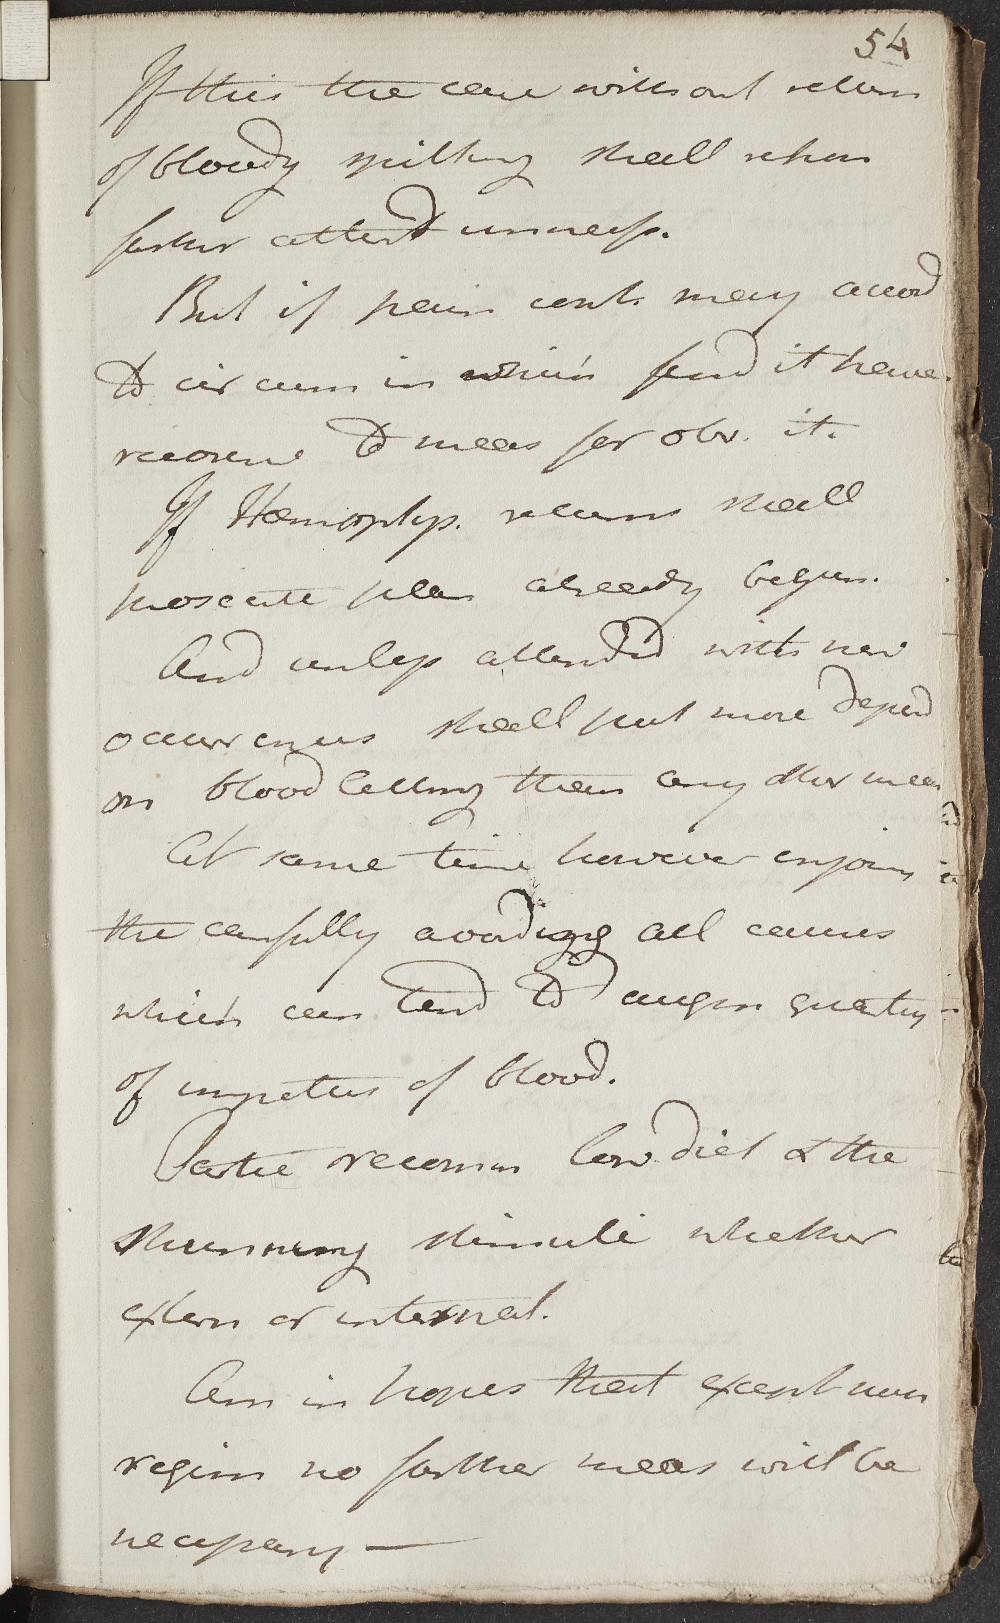 54
If this the case without return
of bloody spitting shall when
farther attend unness.
But if pain cont. may accord
to circum in which find it have
recourse to meas for obv. it.
If Hæmoptys. recurs shall
prosecute plan already begun.
And unless attended with new
occurrences shall put more depend
on blood letting than any other meas
At same time however enjoin
the carefully avoiding all causes
which can tend to augm quantity
of impetus of blood.
Partic recomm low diet & the
shunning stimuli whether
extern or internal.
Am in hopes that except
regim no farther meas will be
necessary —